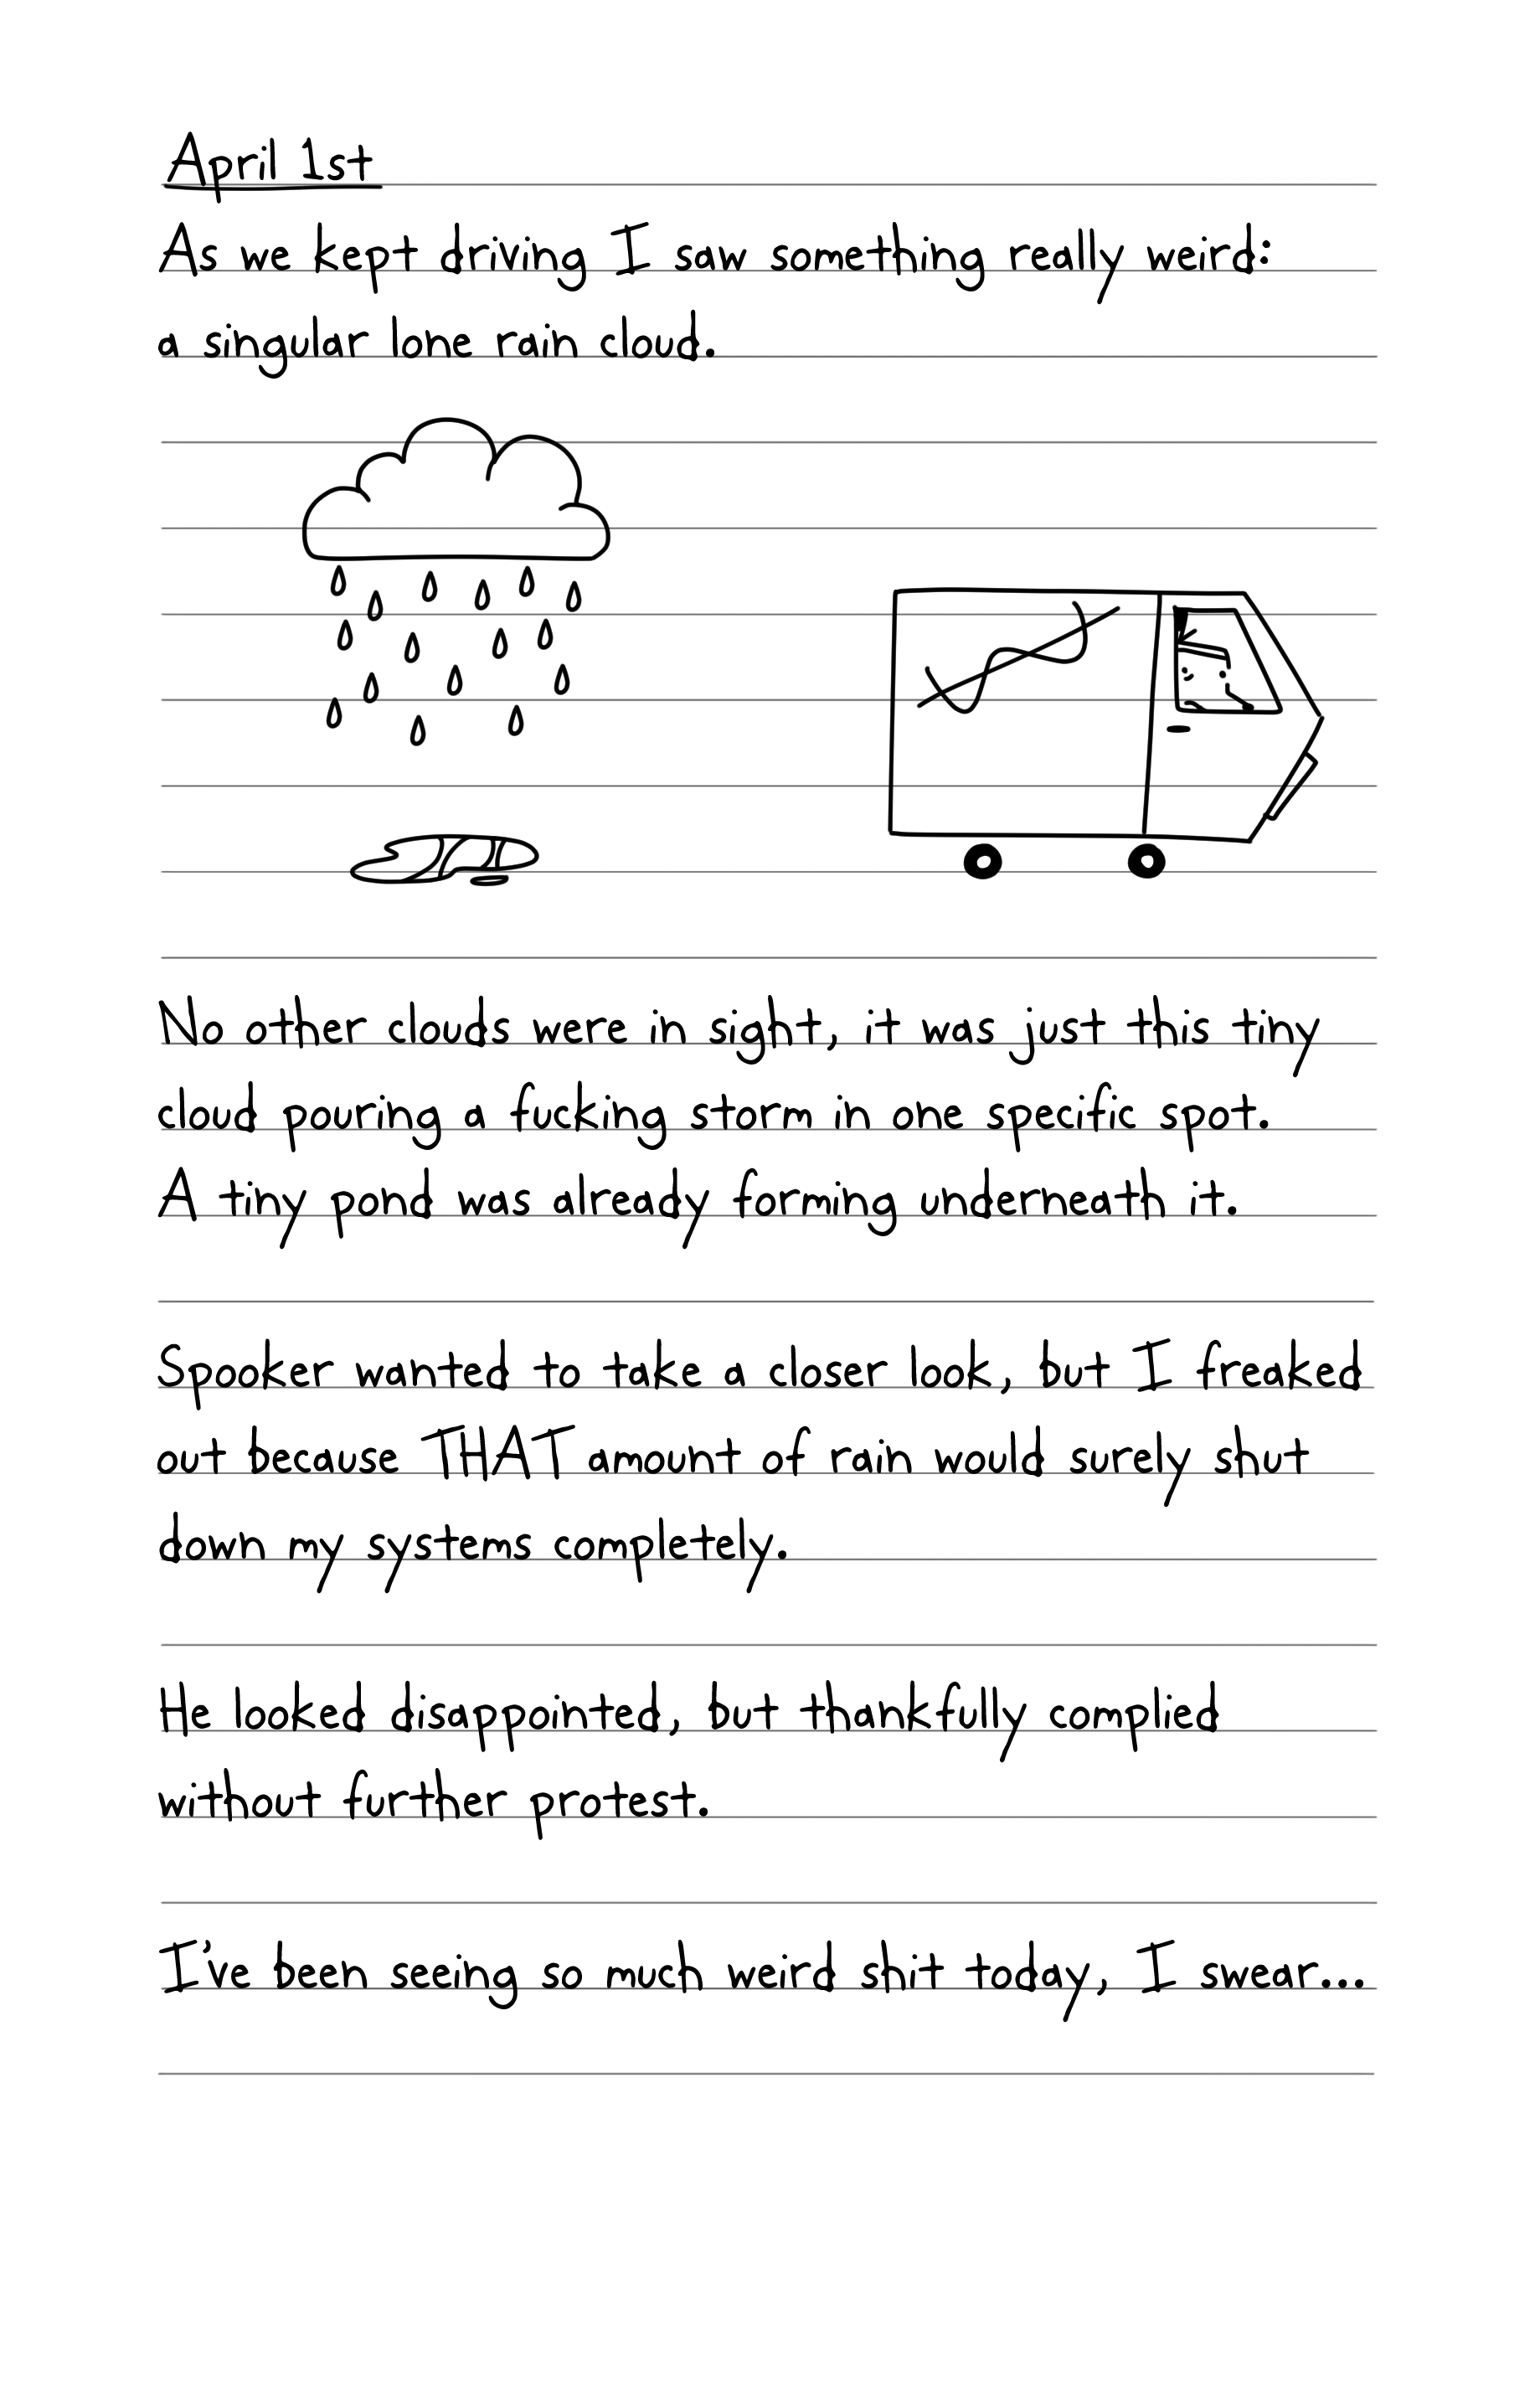 April 1st
As we kept driving I saw something really weird:
a singular lone rain cloud.
No other clouds were in sight, it was just this tiny
cloud pouring a fucking storm in one specific spot.
A tiny pond was already forming underneath it.
Spooker wanted to take a closer look, but I freaked
out because THAT amount of rain would surely shut
down my systems completely.
He looked disappointed, but thankfully complied
without further protest.
I've been seeing so much weird shit today, I swear...